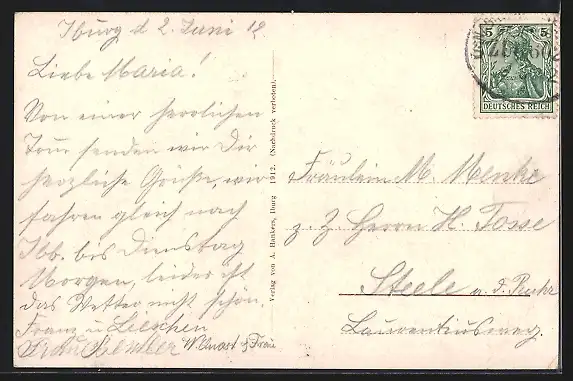 Iburg d 2. Juni 12
Liebe Maria!
Von einer herrlichen
Tour senden wir Dir
herzliche Grüße, wir
fahren gleich nach
Ibb. bis Dienstag
Morgen, leider ist
das Wetter nicht schön.
Franz u Lieschen
W. Unast & Frau
Verlag von A. Hankers, Iburg 1912. (Nachdruck verboten).
5 5
DEUTSCHES REICH
Fräulein M. Menke
z. Z Herrn H. Tosse
Steele a. d. Ruhr
Laurentiusweg.